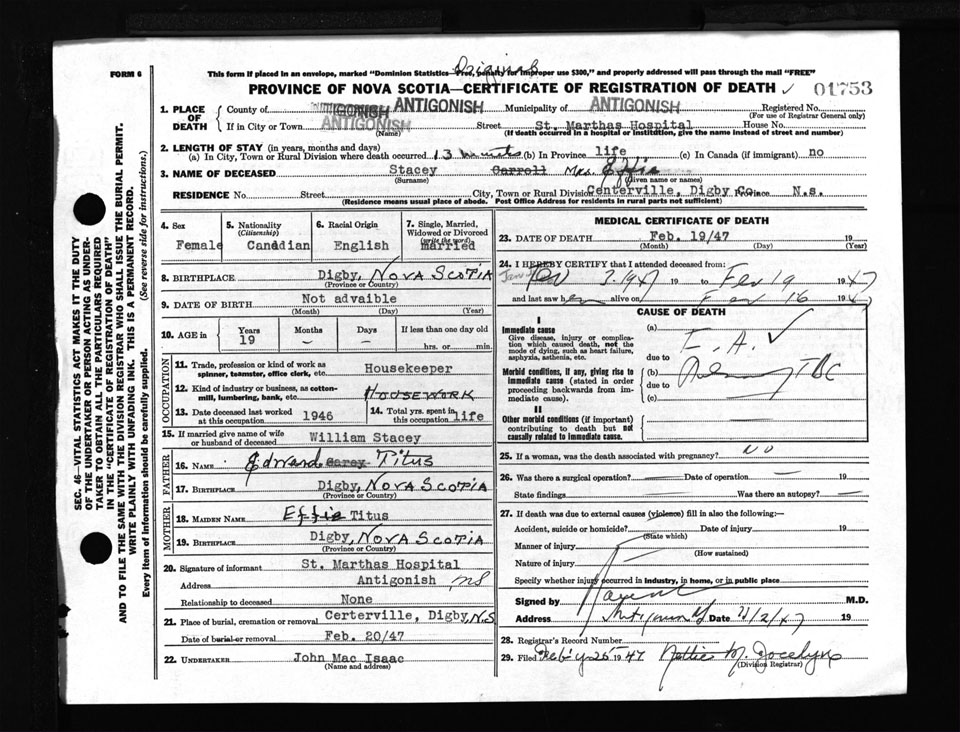 FORM 6
Original
This form if placed in an envelope, marked "Dominion Statistics—Free, penalty for improper use $300," and properly addressed will pass through the mail "FREE"
PROVINCE OF NOVA SCOTIA—CERTIFICATE OF REGISTRATION OF DEATH ✓ 01753
SEC. 46—VITAL STATISTICS ACT MAKES IT THE DUTY
OF THE UNDERTAKER OR PERSON ACTING AS UNDER-
TAKER TO OBTAIN ALL THE PARTICULARS REQUIRED
IN THE "CERTIFICATE OF REGISTRATION OF DEATH"
AND TO FILE THE SAME WITH THE DIVISION REGISTRAR WHO SHALL ISSUE THE BURIAL PERMIT.
WRITE PLAINLY WITH UNFADING INK. THIS IS A PERMANENT RECORD.
Every item of information should be carefully supplied. (See reverse side for instructions.)
1. PLACE OF DEATH
County of ANTIGONISH ANTIGONISH Municipality of ANTIGONISH Registered No.
(For use of Registrar General only)
If in City or Town ANTIGONISH Street St. Marthas Hospital House No.
(Name) (If death occurred in a hospital or institution, give the name instead of street and number)
2. LENGTH OF STAY (in years, months and days)
(a) In City, Town or Rural Division where death occurred 13 (b) In Province life (c) In Canada (if immigrant) no
3. NAME OF DECEASED Stacey Carroll Mrs. Effie
(Surname) (Given name or names)
RESIDENCE No. Street City, Town or Rural Division Centerville, Digby Co. Province N.s.
(Residence means usual place of abode. Post Office Address for residents in rural parts not sufficient)
4. Sex
Female
5. Nationality
(Citizenship)
Canddian
6. Racial Origin
English
7. Single, Married,
Widowed or Divorced
(write the word)
married
8. BIRTHPLACE Digby, NOVA SCOTIA
(Province or Country)
9. DATE OF BIRTH Not advaible
(Month) (Day) (Year)
10. AGE in
Years Months Days If less than one day old
19 – – hrs. or min.
OCCUPATION
11. Trade, profession or kind of work as
spinner, teamster, office clerk, etc. Housekeeper
12. Kind of industry or business, as cotton-
mill, lumbering, bank, etc. HOUSEWORK
13. Date deceased last worked
at this occupation 1946
14. Total yrs. spent in
this occupation life
15. If married give name of wife
or husband of deceased William Stacey
FATHER
16. NAME Edward Carey Titus
17. BIRTHPLACE Digby, NOVA SCOTIA
(Province or Country)
MOTHER
18. MAIDEN NAME Effie Titus
19. BIRTHPLACE Digby, NOVA SCOTIA
(Province or Country)
20. Signature of informant St. Marthas Hospital
Address Antigonish NS
Relationship to deceased None
21. Place of burial, cremation or removal Certerville, Digby, N.S
Date of burial or removal Feb. 20/47
22. UNDERTAKER John Mac Isaac
(Name and address)
MEDICAL CERTIFICATE OF DEATH
23. DATE OF DEATH Feb. 19/47 19
(Month) (Day) (Year)
24. I HEREBY CERTIFY that I attended deceased from:
Jan 3. 1947 19 to Feb 19 1947
and last saw her alive on Feb 16 1947
CAUSE OF DEATH
I
Immediate cause
Give disease, injury or complica-
tion which caused death, not the
mode of dying, such as heart failure,
asphyxia, asthenia, etc.
(a) F. A. ✓
due to
Morbid conditions, if any, giving rise to
immediate cause (stated in order
proceeding backwards from im-
mediate cause).
(b) TBC
due to
(c)
II
Other morbid conditions (if important)
contributing to death but not
causally related to immediate cause.
25. If a woman, was the death associated with pregnancy? NO
26. Was there a surgical operation? — Date of operation — 19
State findings Was there an autopsy? —
27. If death was due to external causes (violence) fill in also the following:—
Accident, suicide or homicide? Date of injury 19
(State which)
Manner of injury
(How sustained)
Nature of injury
Specify whether injury occurred in industry, in home, or in public place
Signed by M.D.
Address Antigonish Date 21/2/47 19
28. Registrar's Record Number
29. Filed Feb'y 25 1947 Nettie M. Jocelyn
(Division Registrar)